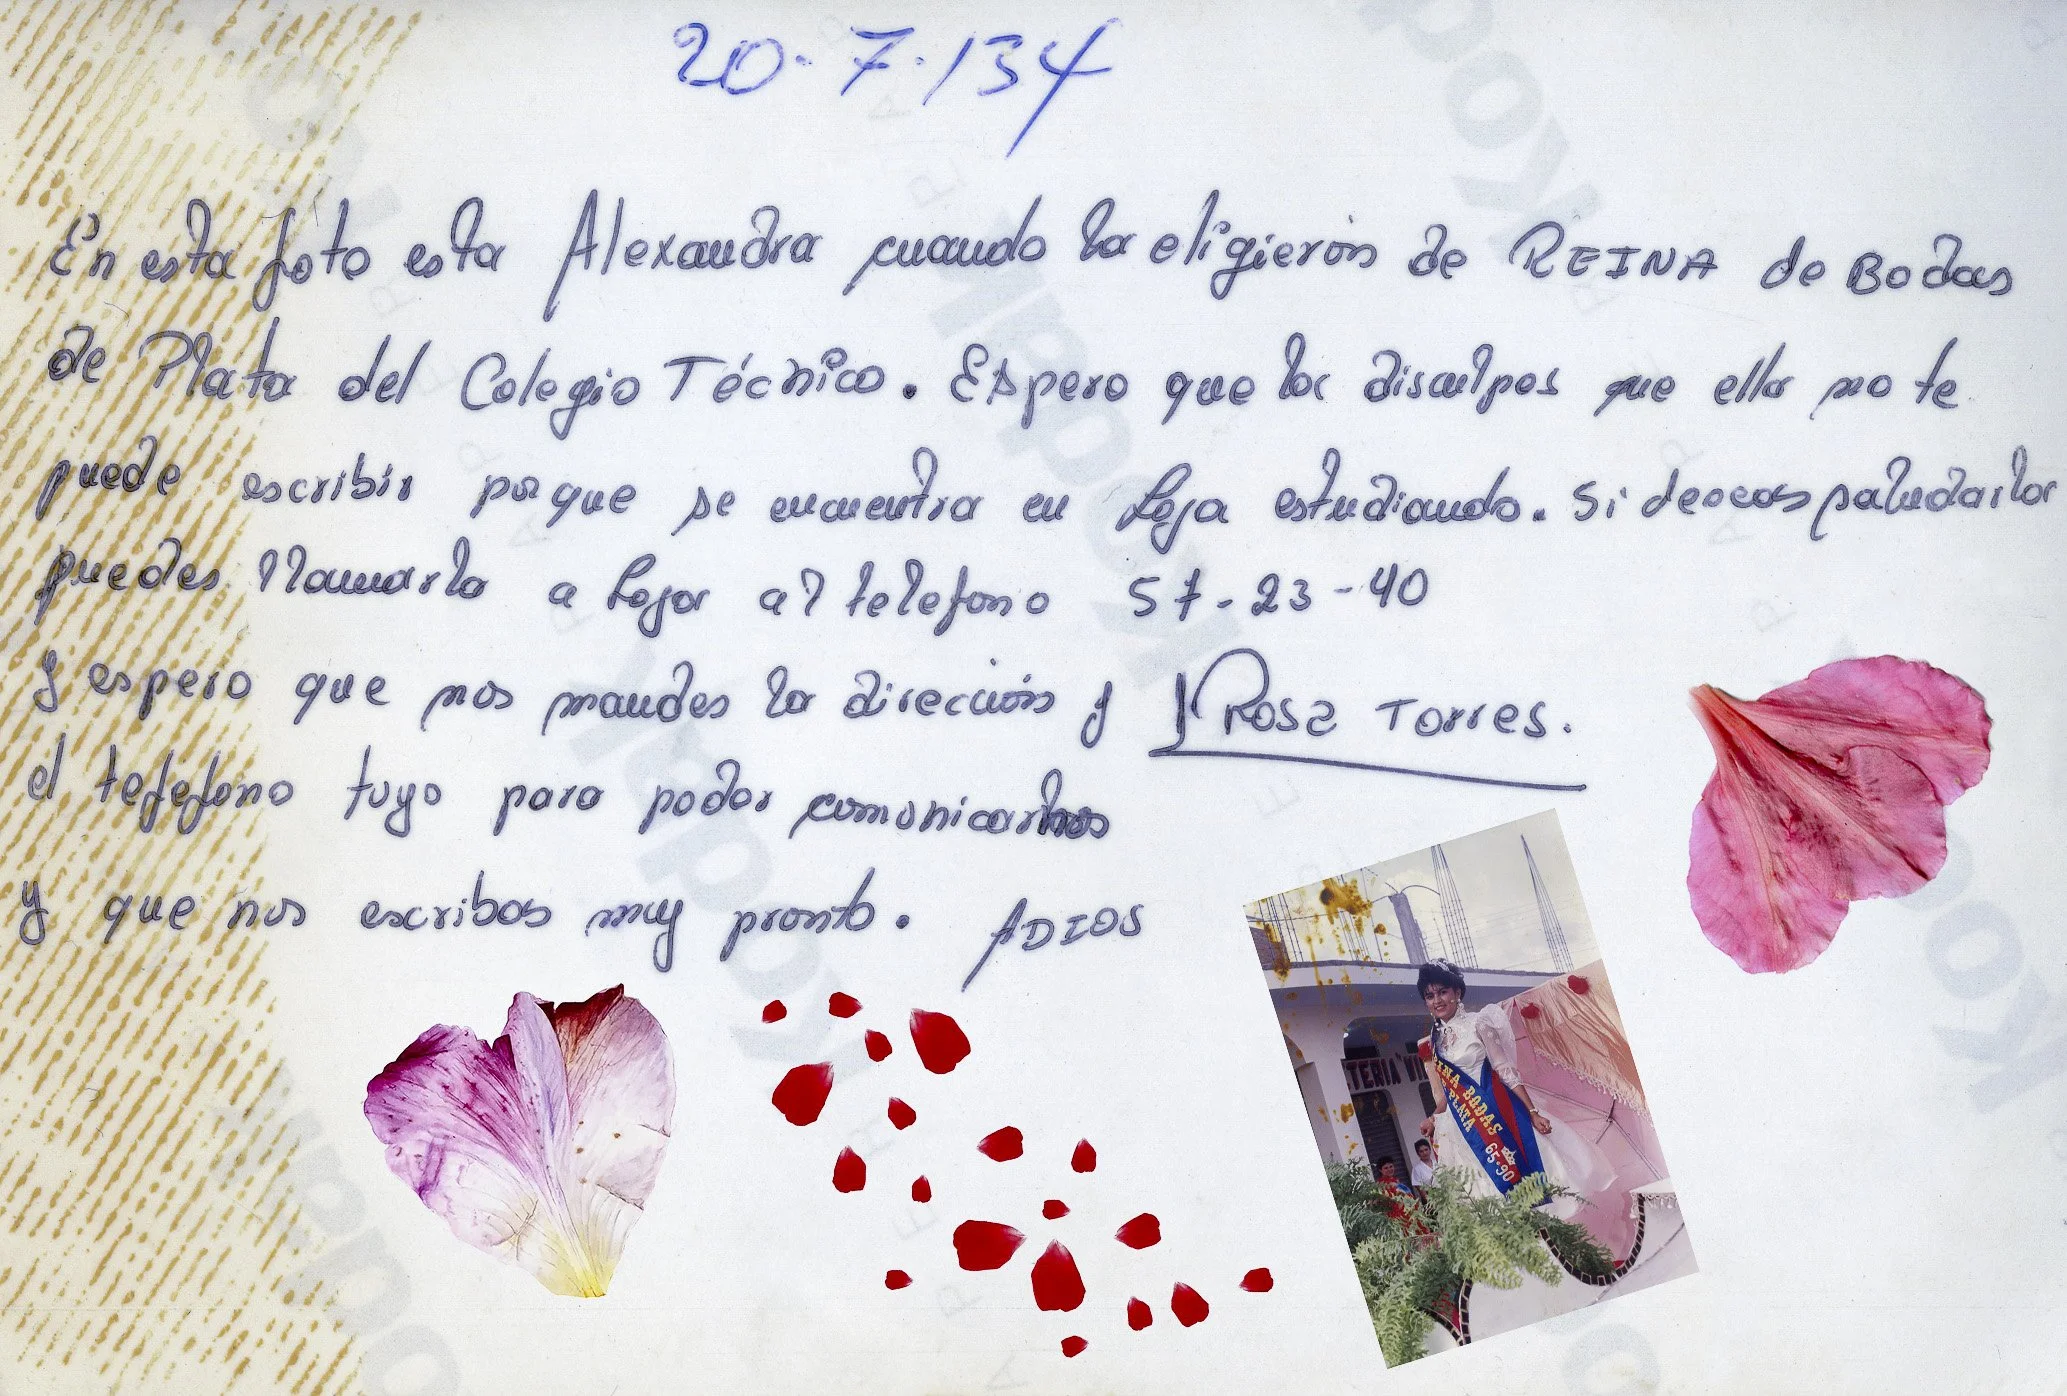 20-7-134
En esta foto esta Alexandra cuando la eligierón de REINA de Bodas
de Plata del Colegio Técnico. Espero que la disculpes que ella no te
puede escribir porque se encuentra en Loja estudiando. Si deseas saludarla
puedes llamarla a Loja al telefono 57-23-40
y espero que nos mandes la dirección y
Rosa Torres.
el telefono tuyo para poder comunicarnos
y que nos escribas muy pronto. ADIOS
ETERIA
INA BODAS
PLATA
65-90
Kodak
Kodak
Kodak
Kodak
Kodak